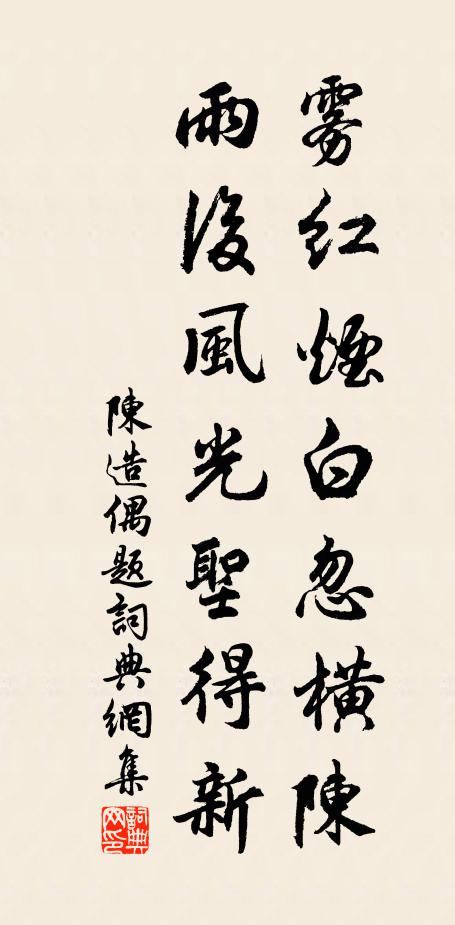 雾紅煙白忽橫陳
雨後風光聖得新
陳造偶題詞典網集
詞典网印